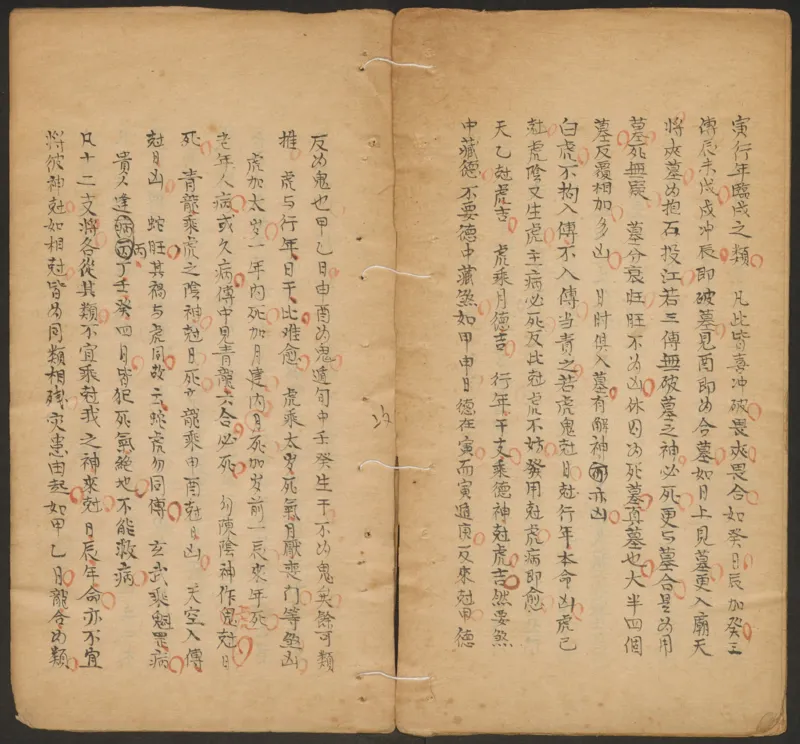 寅行年臨戌之類　凡此皆喜冲破畏夾畏合如癸日辰加癸三
傳辰未戌戌冲辰即破墓見酉即為合墓如日上見墓更入廟天
將夾墓為抱石投江若三傳無破墓之神必死更与墓合是為用
墓死無疑　墓分衰旺旺不為凶休囚為死墓真墓也大半四個
墓反覆相加多凶　日時俱入墓有解神亦凶
白虎不拘入傳不入傳当責之若虎鬼尅日尅行年本命凶虎已
尅虎陰又生虎主病必死反此尅虎不妨發用尅虎病即愈
天乙尅虎吉　虎乘月德吉　行年干支乘德神尅虎吉然要煞
中藏德不要德中藏煞如甲申日德在寅而寅遁庚反來尅甲德
反為鬼也甲乙日申酉為鬼遁旬中壬癸生干不為鬼矣餘可類
推　虎与行年日干比难愈　虎乘太岁死氣月厭喪门等煞凶
虎加太岁一年内死加月建内月死加岁前一辰來年死
老年人病或久病傳中見青龍六合必死　勾陳陰神作鬼尅日
死　青龍乘虎之陰神尅日死　龍乘申酉尅日凶　天空入傳
尅日凶　蛇旺其禍与虎同故云蛇虎勿同傳　玄武乘魁罡病
丙
貴人逢丁壬癸四月皆犯死氣絶也不能救病
凡十二支將各從其類不宜乘尅我之神來尅日辰年命亦不宜
將彼神尅如相尅皆為同類相殘灾患由起如甲乙日龍合為類